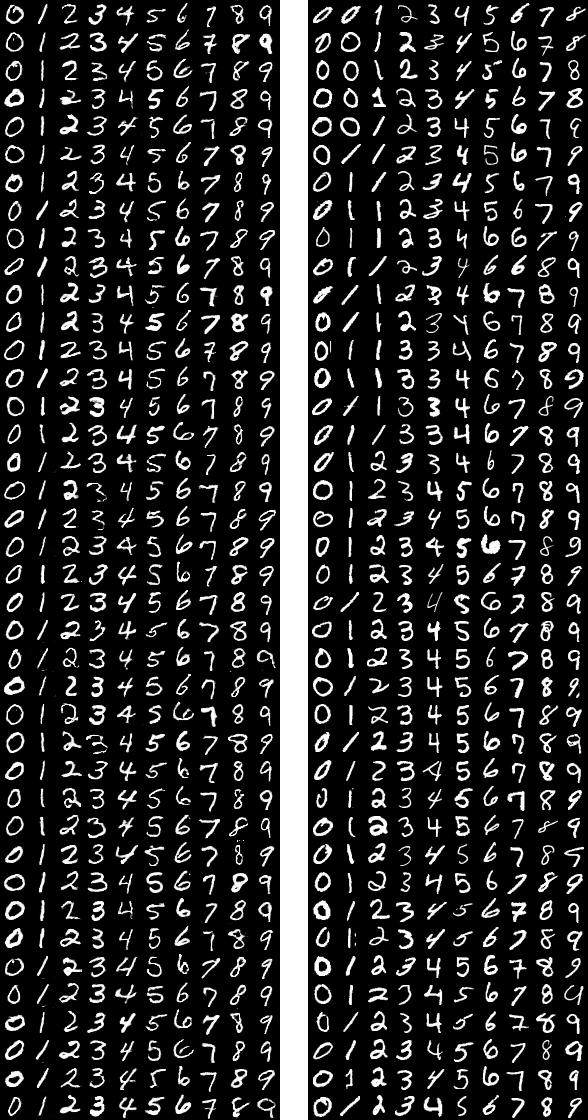 0 1 2 3 4 5 6 7 8 9 0 0 1 2 3 4 5 6 7 8
0 1 2 3 4 5 6 7 8 9 0 0 1 2 3 4 5 6 7 8
0 1 2 3 4 5 6 7 8 9 0 0 1 2 3 4 5 6 7 8
0 1 2 3 4 5 6 7 8 9 0 0 1 2 3 4 5 6 7 8
0 1 2 3 4 5 6 7 8 9 0 0 1 2 3 4 5 6 7 8
0 1 2 3 4 5 6 7 8 9 0 1 1 2 3 4 5 6 7 9
0 1 2 3 4 5 6 7 8 9 0 1 1 2 3 4 5 6 7 9
0 1 2 3 4 5 6 7 8 9 0 1 1 2 3 4 5 6 7 9
0 1 2 3 4 5 6 7 8 9 0 1 1 2 3 4 6 6 7 9
0 1 2 3 4 5 6 7 8 9 0 1 1 2 3 4 6 6 8 9
0 1 2 3 4 5 6 7 8 9 0 1 1 2 3 4 6 7 8 9
0 1 2 3 4 5 6 7 8 9 0 1 1 2 3 4 6 7 8 9
0 1 2 3 4 5 6 7 8 9 0 1 1 3 3 4 6 7 8 9
0 1 2 3 4 5 6 7 8 9 0 1 1 3 3 4 6 7 8 9
0 1 2 3 4 5 6 7 8 9 0 1 1 3 3 4 6 7 8 9
0 1 2 3 4 5 6 7 8 9 0 1 1 3 3 4 6 7 8 9
0 1 2 3 4 5 6 7 8 9 0 1 2 3 3 4 6 7 8 9
0 1 2 3 4 5 6 7 8 9 0 1 2 3 4 5 6 7 8 9
0 1 2 3 4 5 6 7 8 9 0 1 2 3 4 5 6 7 8 9
0 1 2 3 4 5 6 7 8 9 0 1 2 3 4 5 6 7 8 9
0 1 2 3 4 5 6 7 8 9 0 1 2 3 4 5 6 7 8 9
0 1 2 3 4 5 6 7 8 9 0 1 2 3 4 5 6 7 8 9
0 1 2 3 4 5 6 7 8 9 0 1 2 3 4 5 6 7 8 9
0 1 2 3 4 5 6 7 8 9 0 1 2 3 4 5 6 7 8 9
0 1 2 3 4 5 6 7 8 9 0 1 2 3 4 5 6 7 8 9
0 1 2 3 4 5 6 7 8 9 0 1 2 3 4 5 6 7 8 9
0 1 2 3 4 5 6 7 8 9 0 1 2 3 4 5 6 7 8 9
0 1 2 3 4 5 6 7 8 9 0 1 2 3 4 5 6 7 8 9
0 1 2 3 4 5 6 7 8 9 0 1 2 3 4 5 6 7 8 9
0 1 2 3 4 5 6 7 8 9 0 1 2 3 4 5 6 7 8 9
0 1 2 3 4 5 6 7 8 9 0 1 2 3 4 5 6 7 8 9
0 1 2 3 4 5 6 7 8 9 0 1 2 3 4 5 6 7 8 9
0 1 2 3 4 5 6 7 8 9 0 1 2 3 4 5 6 7 8 9
0 1 2 3 4 5 6 7 8 9 0 1 2 3 4 5 6 7 8 9
0 1 2 3 4 5 6 7 8 9 0 1 2 3 4 5 6 7 8 9
0 1 2 3 4 5 6 7 8 9 0 1 2 3 4 5 6 7 8 9
0 1 2 3 4 5 6 7 8 9 0 1 2 3 4 5 6 7 8 9
0 1 2 3 4 5 6 7 8 9 0 1 2 3 4 5 6 7 8 9
0 1 2 3 4 5 6 7 8 9 0 1 2 3 4 5 6 7 8 9
0 1 2 3 4 5 6 7 8 9 0 1 2 3 4 5 6 7 8 9